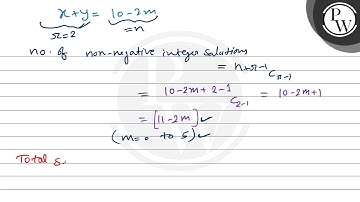 x+y = 10-2m
r=2 =n
no. of non-negative integer solutions
= n+r-1 C r-1
= 10-2m+2-1 C 2-1 = 10-2m+1
= [11-2m] ✓
(m=0 to 5) ✓
Total s
PW